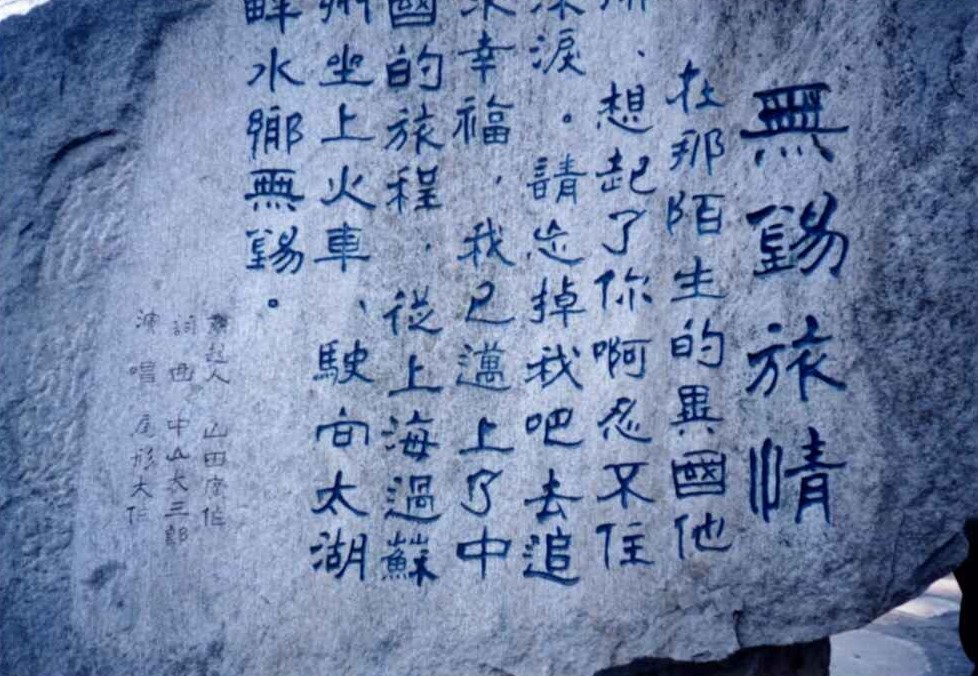 無錫旅情
在那陌生的異國他
、想起了你啊忍不住
淚。請忘掉我吧去追
求幸福,我已邁上了中
國的旅程,從上海過蘇
州坐上火車、駛向太湖
水鄉無錫。
人 山田
詞曲 中山大三郎
演唱 尾形大作